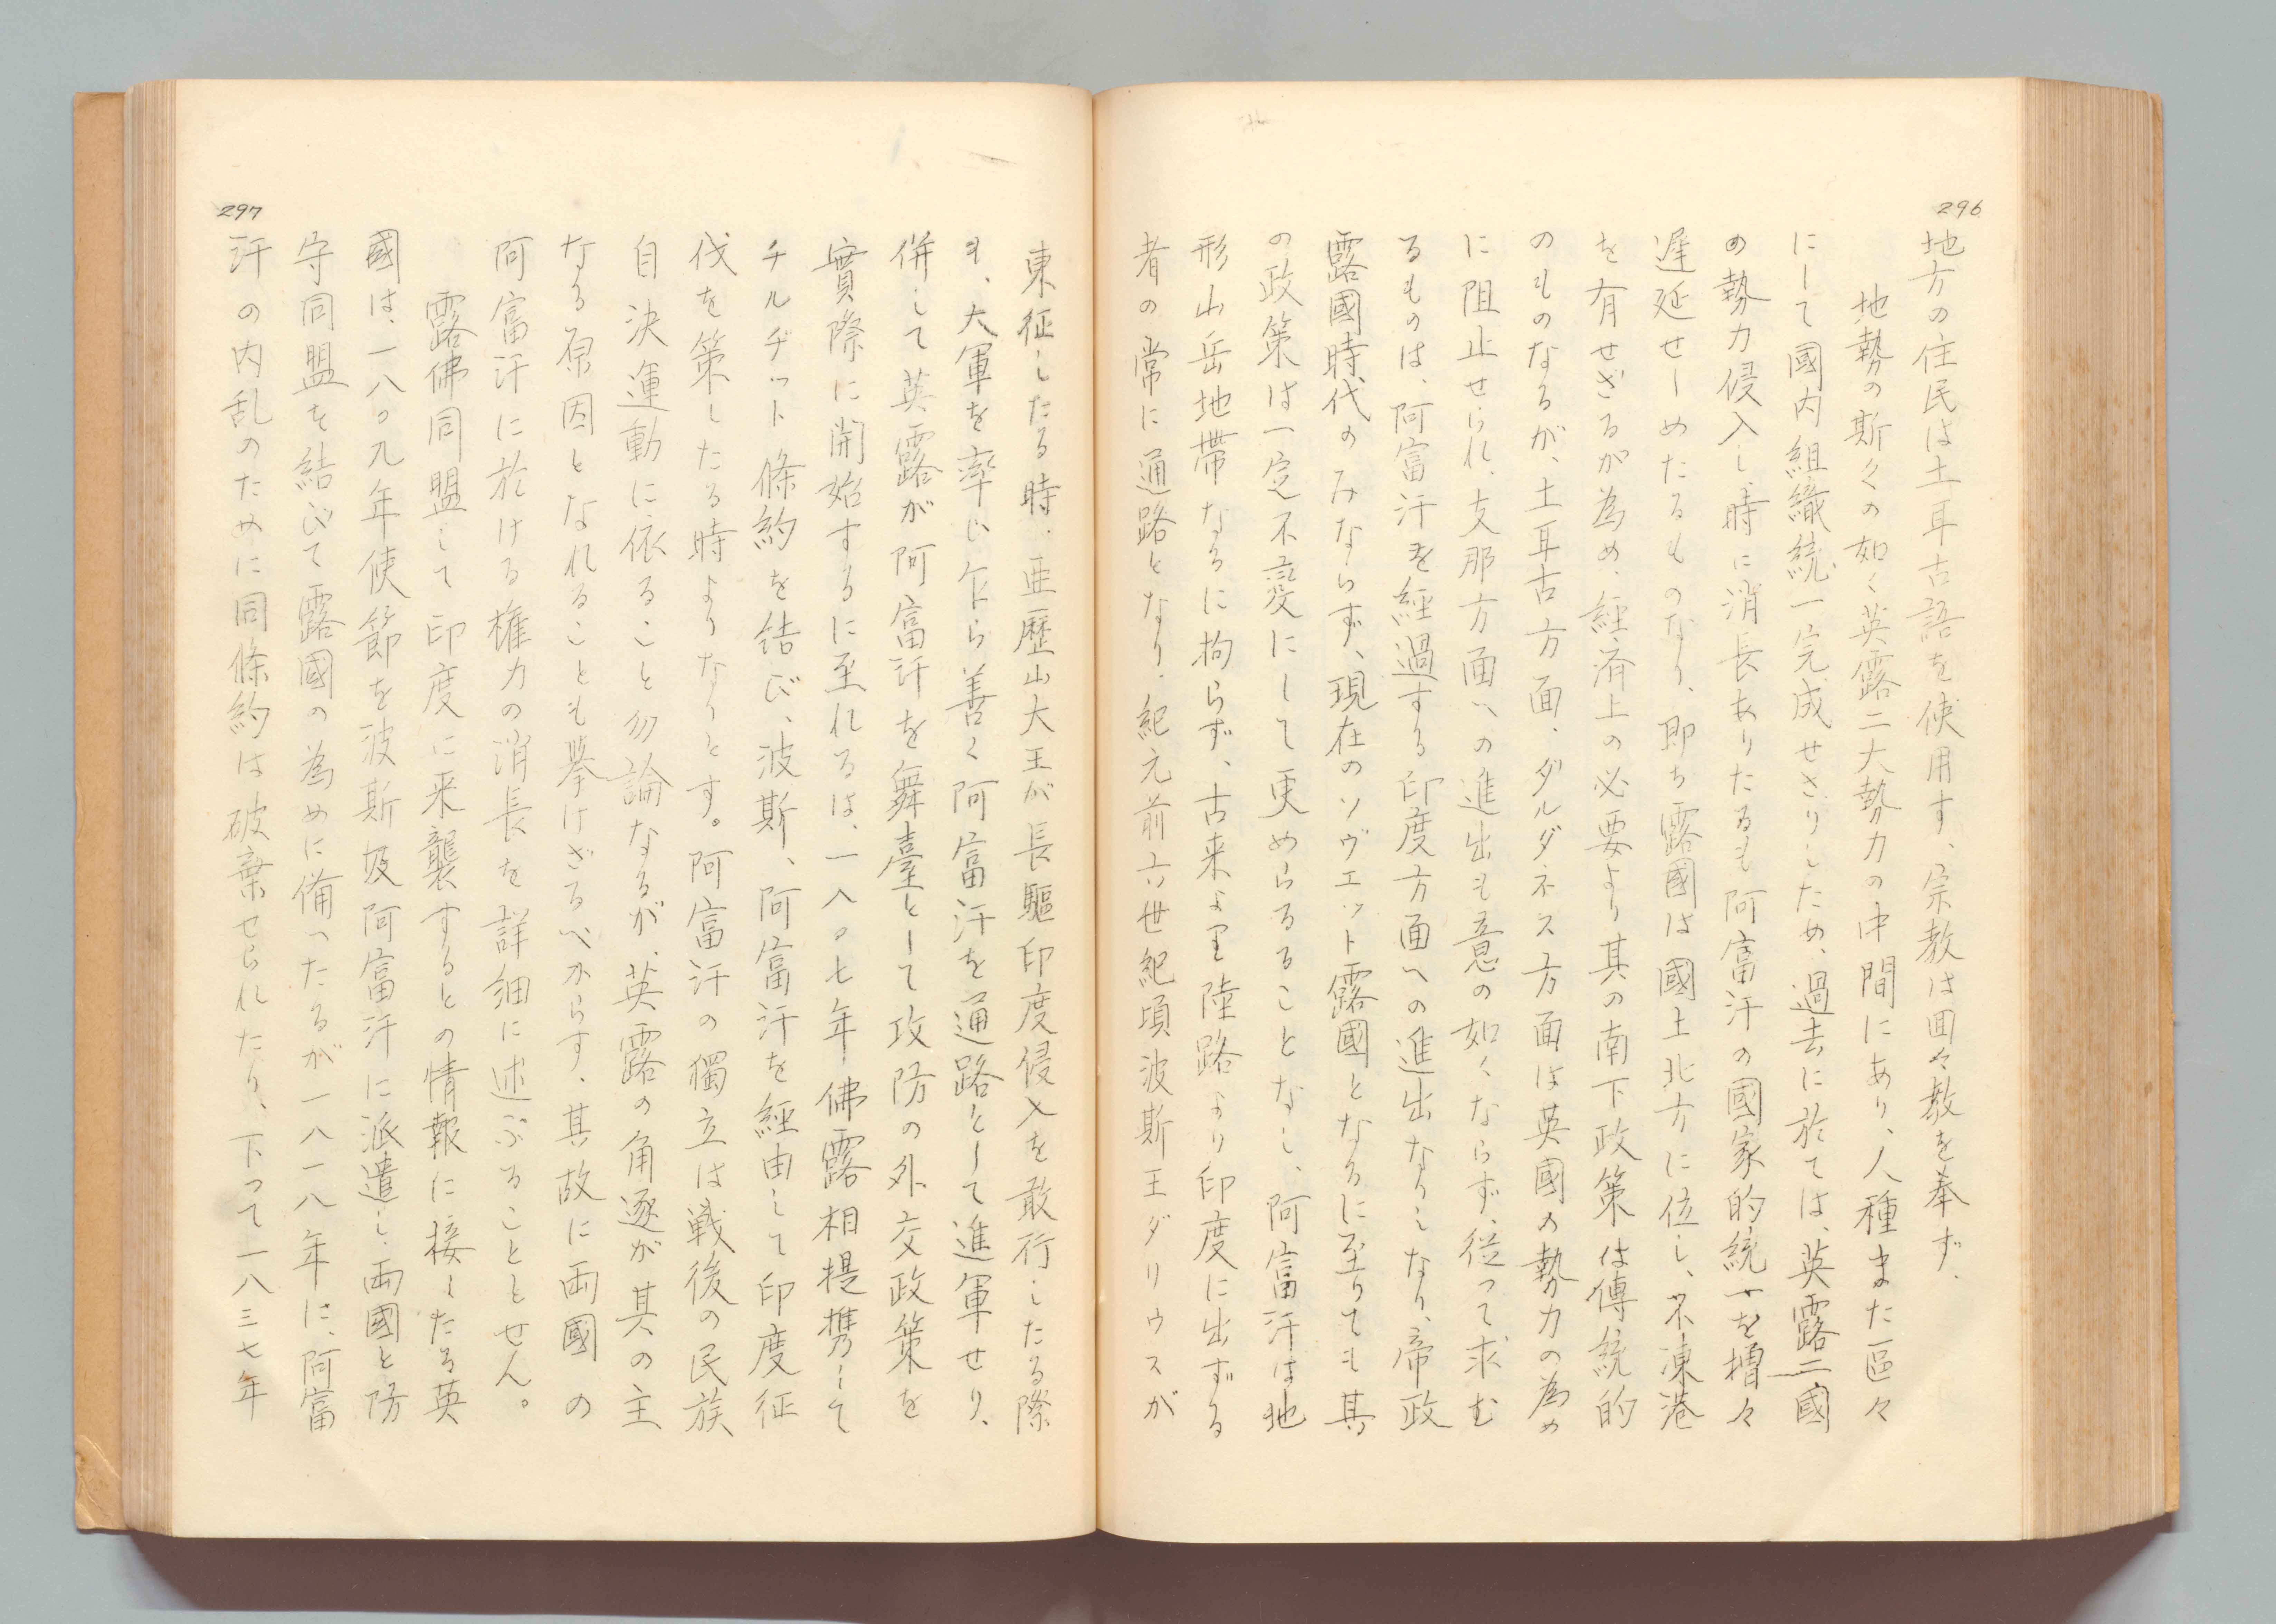 296
地方の住民は土耳古語を使用す、宗教は回々教を奉ず、
地勢の斯くの如く英露二大勢力の中間にあり、人種また區々
にして國内組織統一完成せさりしため、過去に於ては、英露二國
の勢力侵入し、時に消長ありたるも阿富汗の國家的統一を増々
遅延せしめたるものなり、即ち露國は國土北方に位し、不凍港
を有せざるが為め、経済上の必要より其の南下政策は傳統的
のものなるが、土耳古方面、ダルダネス方面は英國の勢力の為め
に阻止せられ、支那方面への進出も意の如くならず、従って求む
るものは、阿富汗を経過する印度方面への進出なりしなり、帝政
露國時代のみならず、現在のソヴエット露國となるに至りても其
の政策は一定不変にして更めらるることなし、阿富汗は地
形山岳地帯なるに拘らず、古来より陸路より印度に出ずる
者の常に通路となり、紀元前六世紀頃波斯王ダリウスが
東征したる時、亜歴山大王が長驅印度侵入を敢行したる際
も、大軍を率い乍ら善く阿富汗を通路として進軍せり、
併して英露が阿富汗を舞臺として攻防の外交政策を
實際に開始するに至れるは、一八〇七年佛露相提携して
チルヂット條約を結び、波斯、阿富汗を経由して印度征
伐を策したる時よりなりとす。阿富汗の獨立は戦後の民族
自決運動に依ること勿論なるが、英露の角逐が其の主
なる原因となれることも挙げざるべからす、其故に両國の
阿富汗に於ける権力の消長を詳細に述ぶることとせん。
露佛同盟して印度に来襲するとの情報に接したる英
國は、一八〇九年使節を波斯及阿富汗に派遣し、両國と防
守同盟を結びて露國の為めに備へたるが一八一八年に、阿富
汗の内乱のために同條約は破棄せられたり、下って一八三七年
297